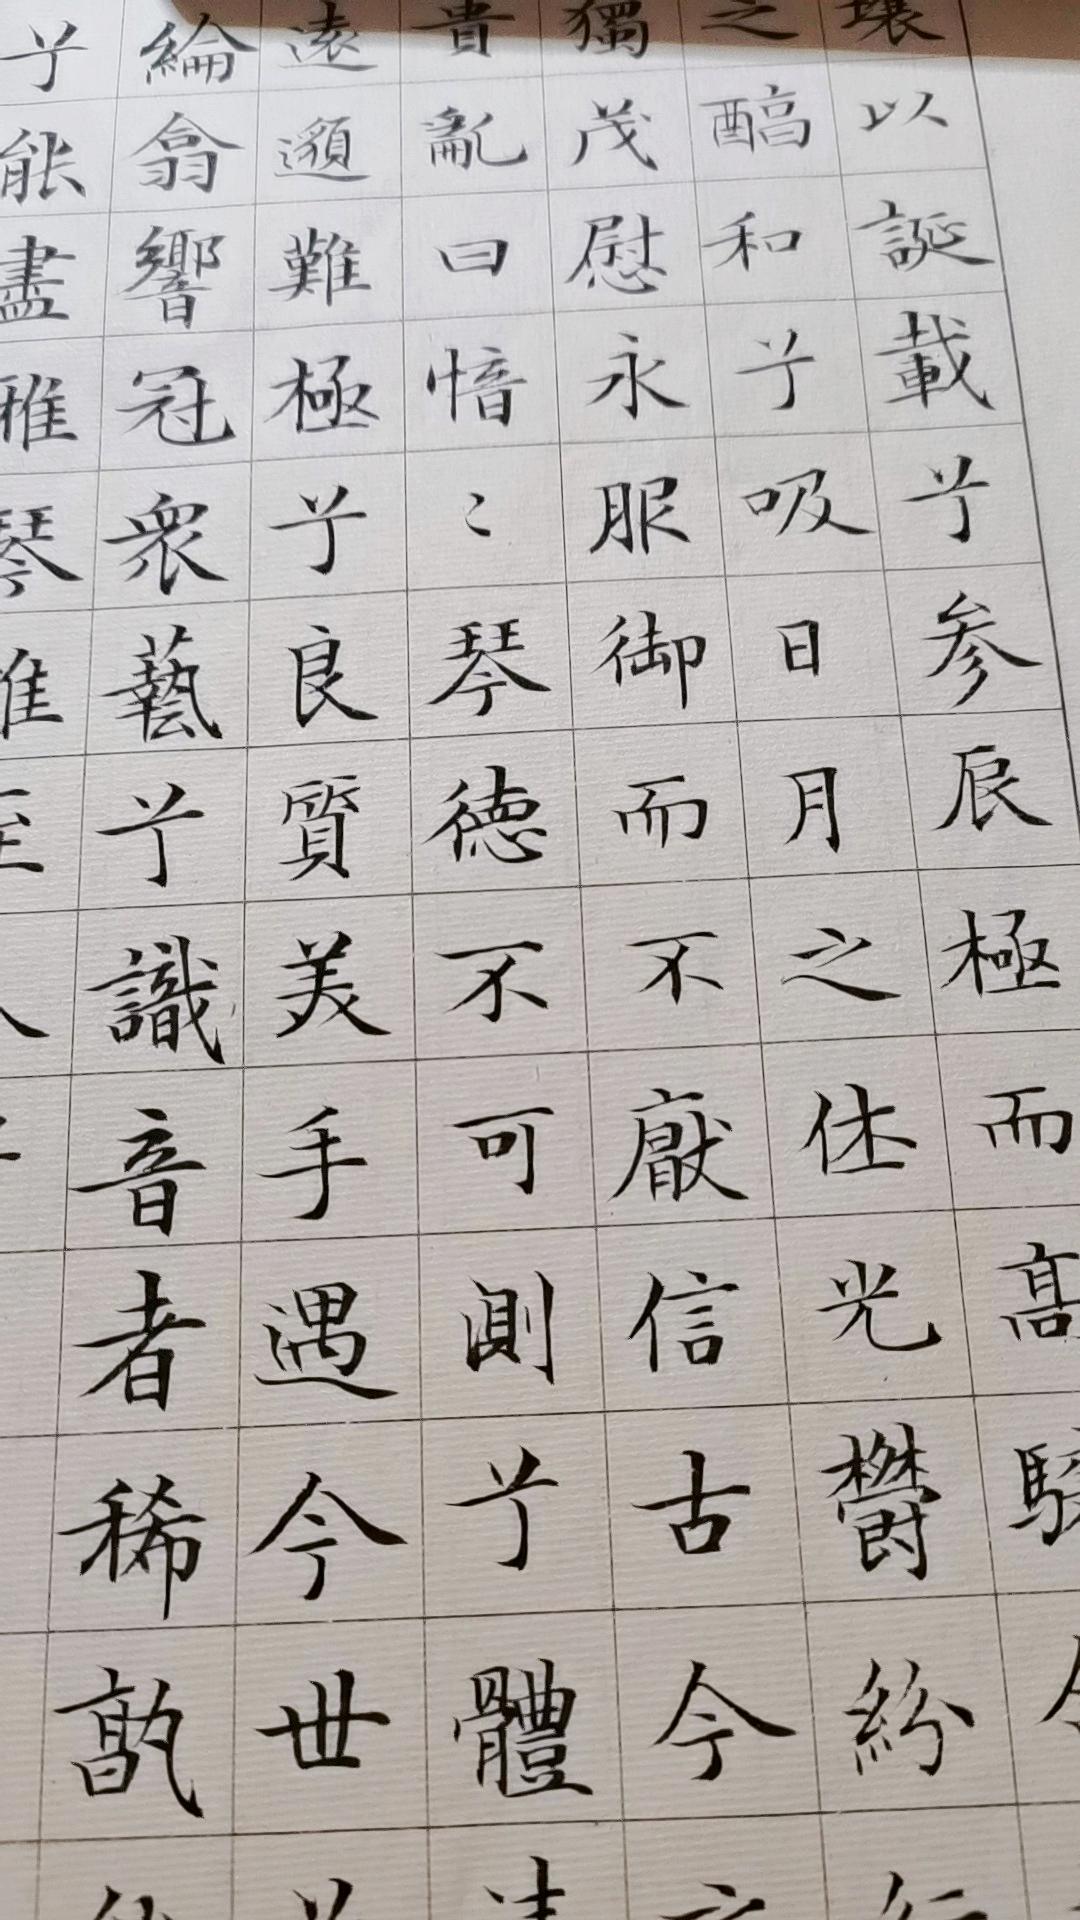 壤以誕載兮参辰極而髙
之醕和兮吸日月之休光欝紛
獨茂慰永服御而不厭信古今
貴亂曰愔〻琴徳不可測兮體
遠邈難極兮良質美手遇今世
綸翕響冠衆藝兮識音者稀孰
兮能盡雅琴唯至人